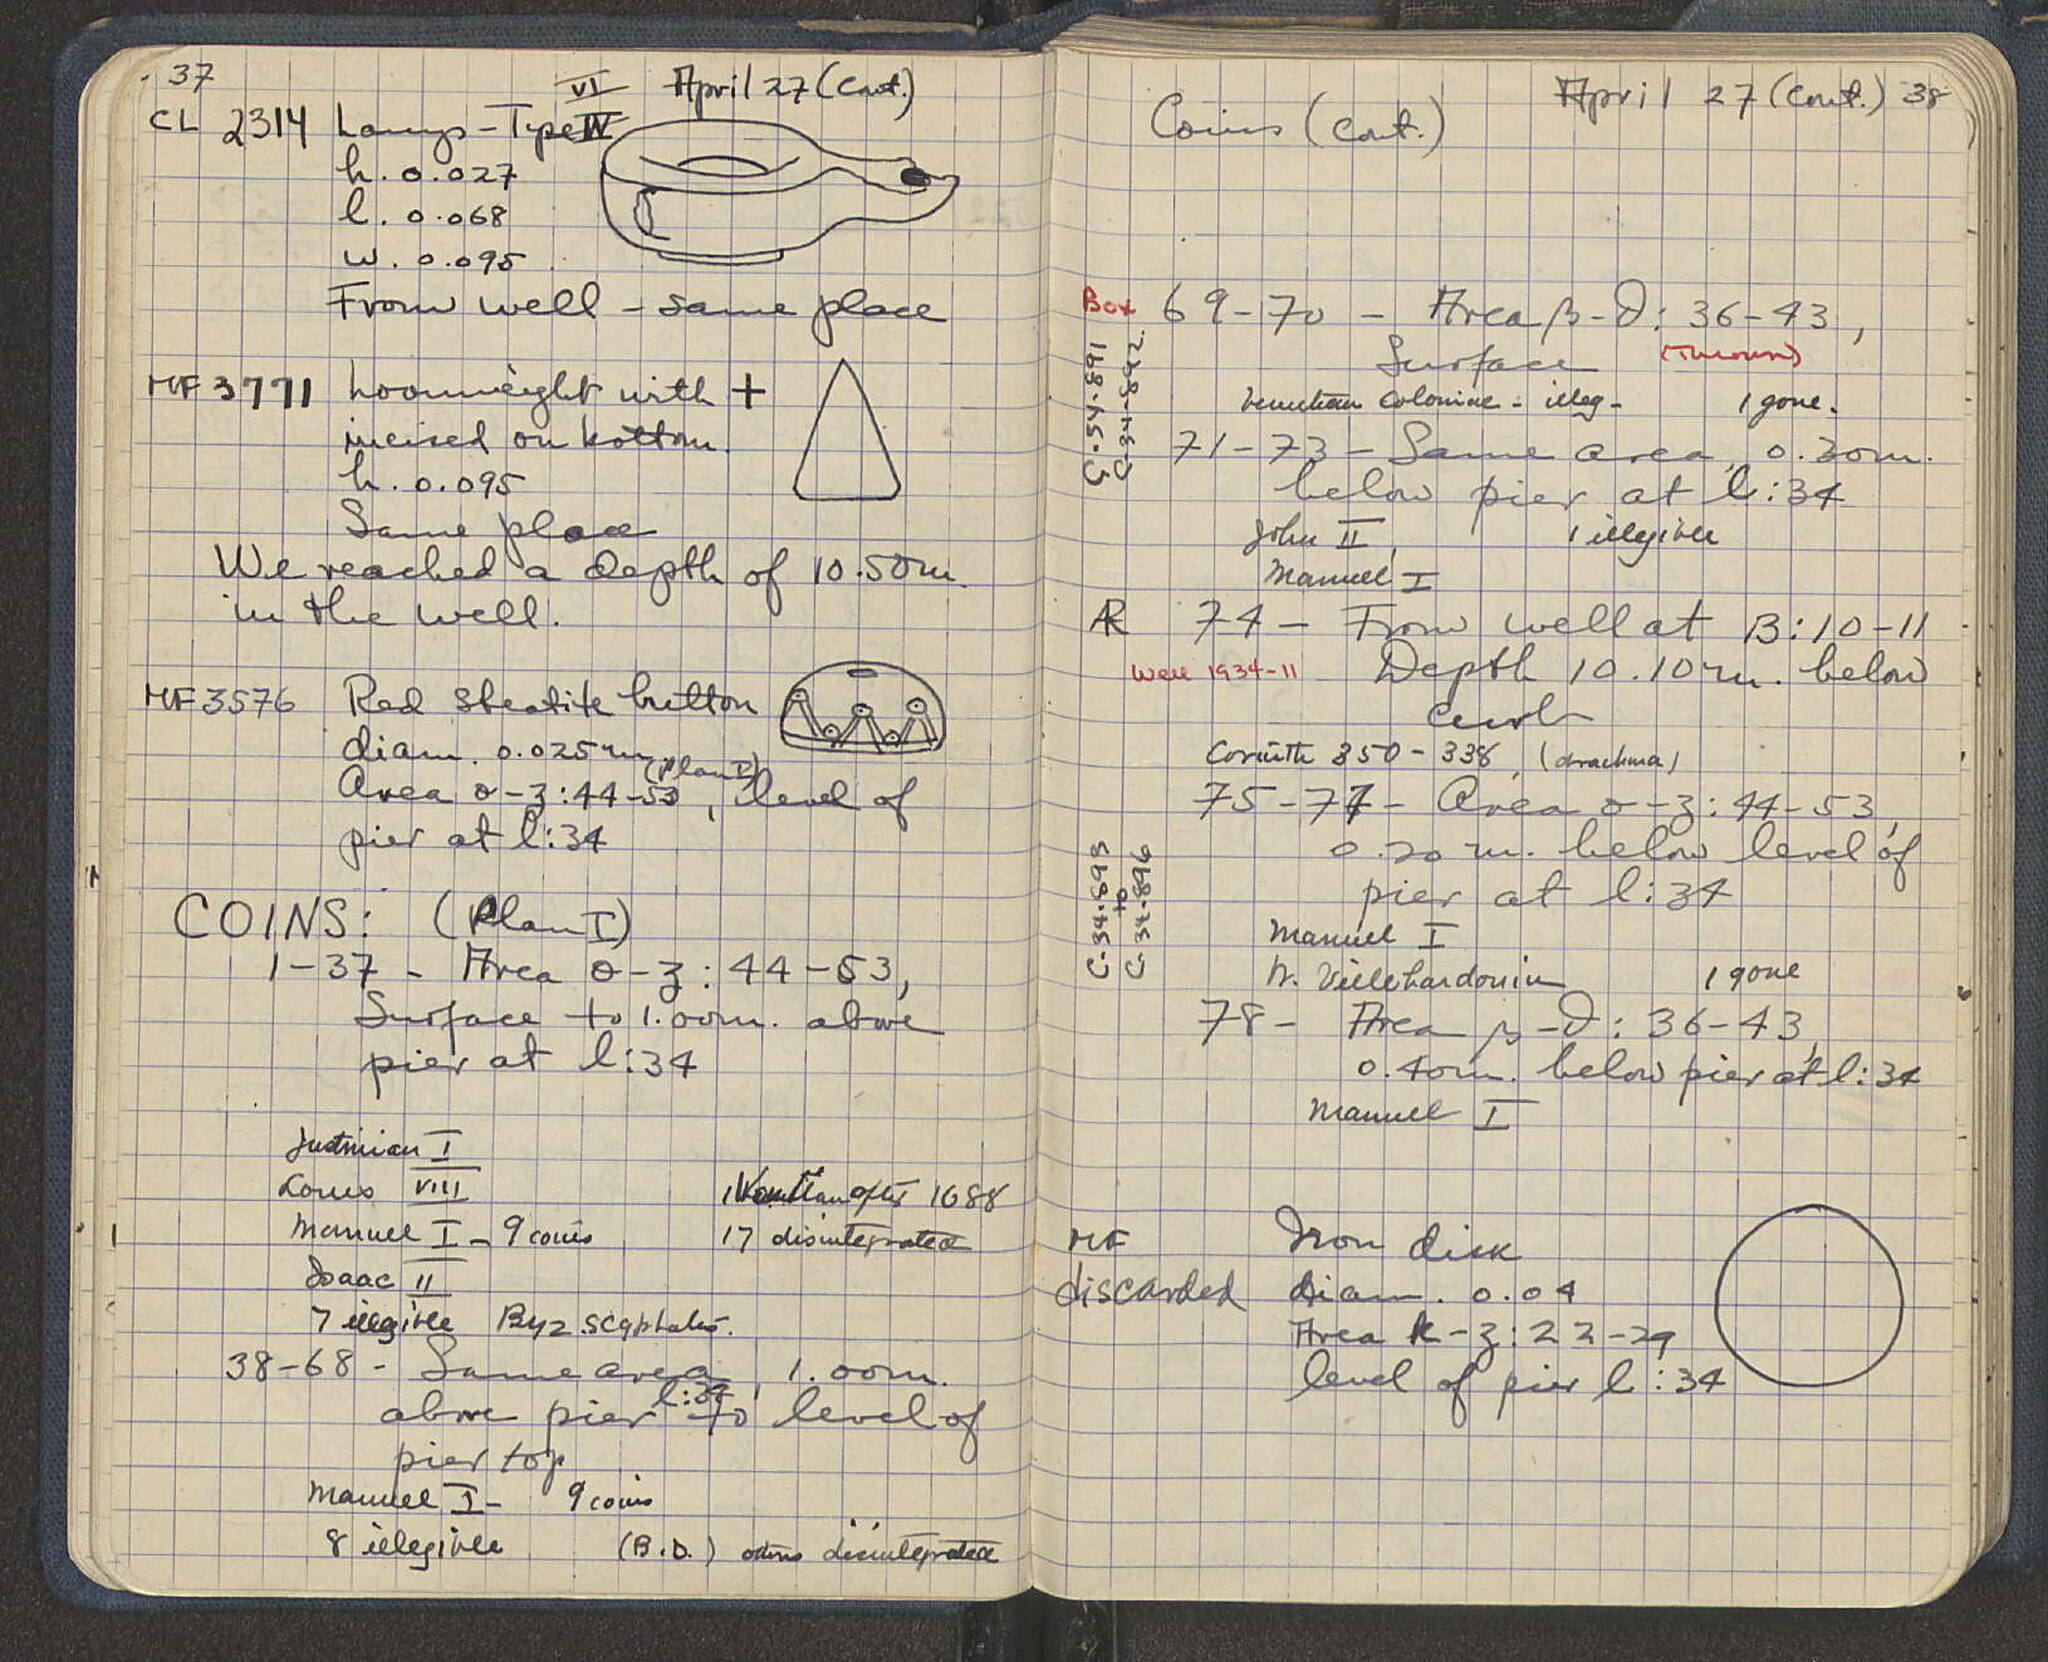 37
VI April 27 (Cont.)
CL 2314 Lamp - Type IV
h. 0.027
l. 0.068
w. 0.095
From well - same place
MF 3771 Loomweight with +
incised on bottom.
h. 0.095
Same place
We reached a depth of 10.50m.
in the well.
MF 3576 Red Steatite button
diam. 0.025m
(Plan I)
Area o-z:44-53, level of
pier at l:34
COINS: (Plan I)
1-37 - Area o-z: 44-53,
Surface to 1.00m. above
pier at l:34
Justinian I
Louis VIII 1 Venetian after 1688
Manuel I - 9 coins 17 disintegrated
Isaac II
7 illegible Byz scyphates.
38-68 - Same area, 1.00m.
above pier l:34 to level of
pier top
Manuel I - 9 coins
8 illegible (B.D.) others disintegrated
April 27 (Cont.) 38
Coins (Cont.)
Box 69-70 - Area β-δ: 36-43,
Surface (Thrown)
Venetian Coloniae - illeg - 1 gone.
71-73 - Same area, 0.30m.
below pier at l:34
John II, 1 illegible
Manuel I
C-34-841
C-34-842
AR 74 - From well at B:10-11
Well 1934-11 Depth 10.10m. below
curb
Corinth 350-338, (drachma)
75-77 - Area o-z: 44-53,
0.20m. below level of
pier at l:34
Manuel I
W. Villehardouin 1 gone
C-34-895
+
C-34-896
78 - Area β-δ: 36-43,
0.40m. below pier at l:34
Manuel I
MF Iron disk
discarded diam. 0.04
Area k-z:22-29
level of pier l:34